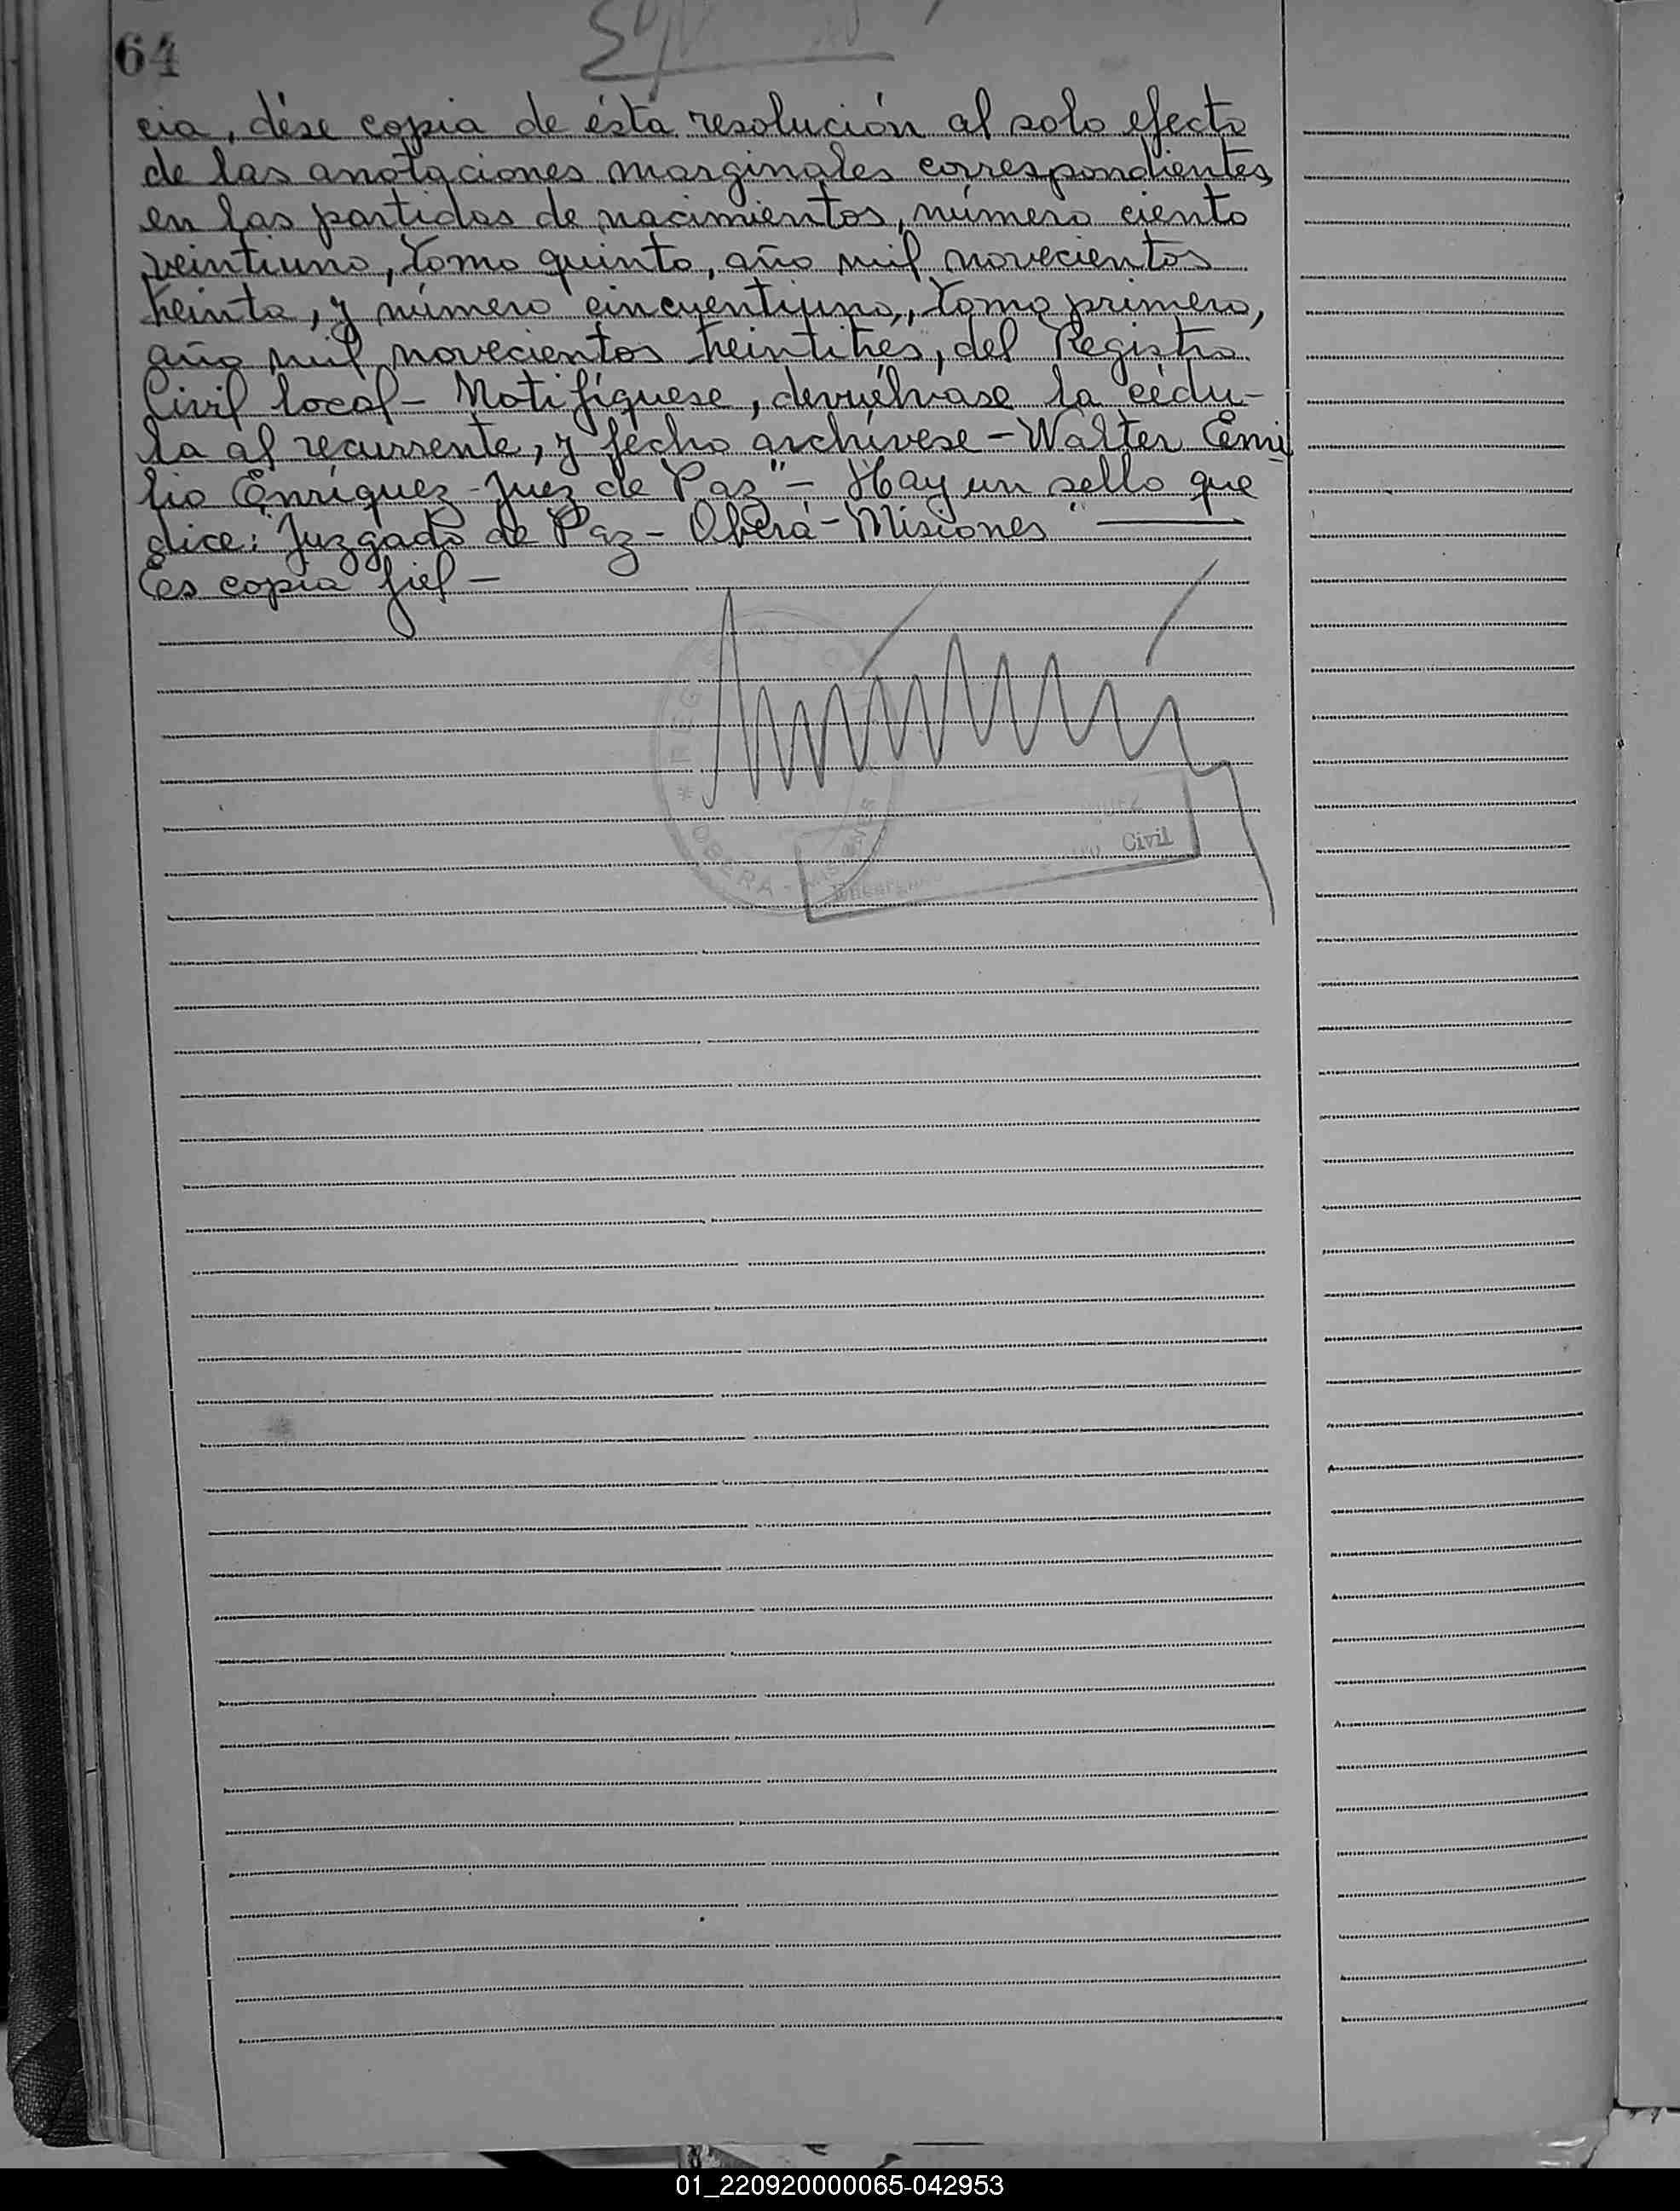 64
cia, dése copia de ésta resolución al solo efecto
de las anotaciones marginales correspondientes
en las partidas de nacimientos, número ciento
veintiuno, tomo quinto, año mil novecientos
treinta, y número cincuentiuno, tomo primero,
año mil novecientos treintitrés, del Registro
Civil local - Notifíquese, devuélvase la cédu-
la al recurrente, y fecho archívese - Walter Emi
lio Enríquez - Juez de Paz" - Hay un sello que
dice: "Juzgado de Paz - Oberá - Misiones"
Es copia fiel -
OBERA -
Civil
01_220920000065-042953